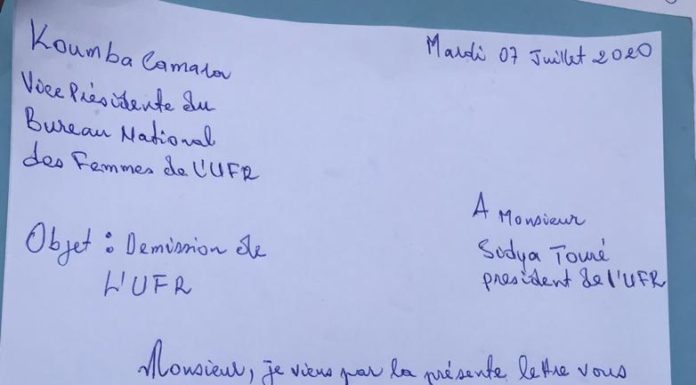 Koumba Camara
Mardi 07 Juillet 2020
Vice Présidente du
Bureau National
des Femmes de L'UFR
A Monsieur
Sidya Touré
president de l'UFR
Objet : Demission de
L'UFR
Monsieur, je viens par la présente lettre vous